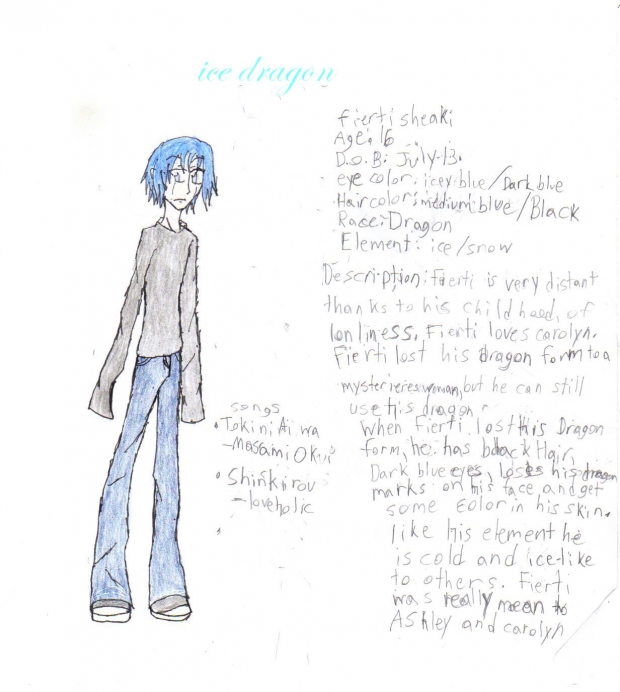 ice dragon
Fierti sheaki
Age: 16
D.O.B: July-13.
eye color: icey blue/Dark blue
Hair color: medium blue/Black
Race: Dragon
Element: ice/snow
Description: Fierti is very distant
thanks to his childhood, of
lonliness. Fierti loves carolyn.
Fierti lost his dragon form to a
mysterieres woman, but he can still
use his dragon.
when Fierti lost this Dragon
form, he has black Hair,
Dark blue eyes, loses his dragon
marks on his face and get
some color in his skin.
like his element he
is cold and ice-like
to others. Fierti
was really mean to
Ashley and carolyn
songs
• Tokini Ai wa
- Masami Okui
• Shinkirou
- loveholic